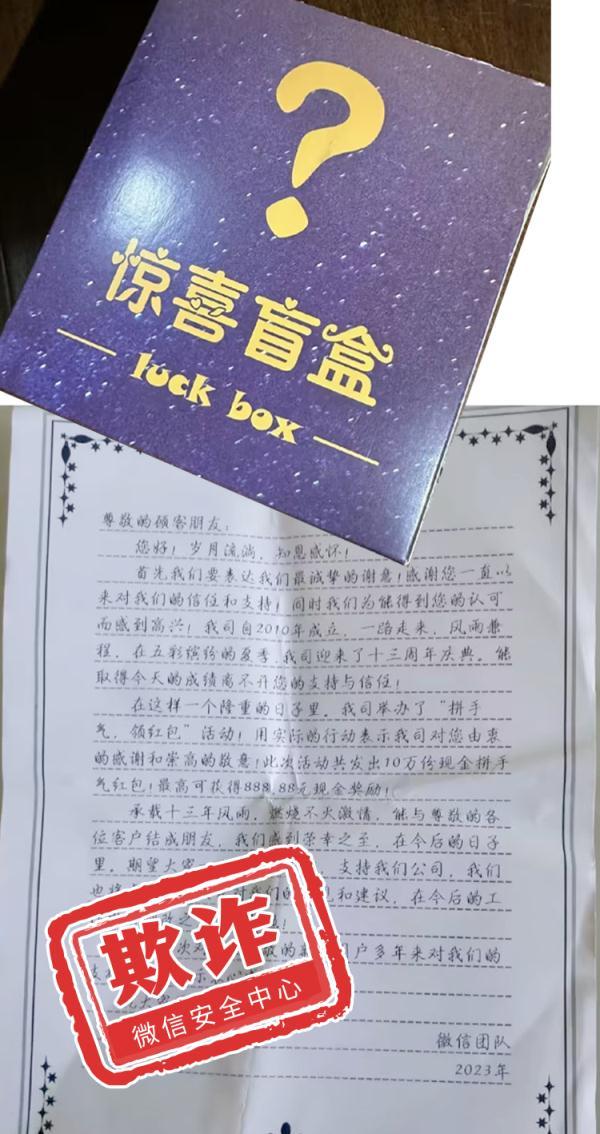 ?
惊喜盲盒
luck box
尊敬的顾客朋友：
您好！岁月流淌，知恩感怀！
首先我们要表达我们最诚挚的谢意！感谢您一直以
来对我们的信任和支持！同时我们为能得到您的认可
而感到高兴！我司自2010年成立，一路走来，风雨兼
程，在五彩缤纷的夏季，我司迎来了十三周年庆典。能
取得今天的成绩离不开您的支持与信任！
在这样一个隆重的日子里，我司举办了“拼手
气，领红包”活动！用实际的行动表示我司对您由衷
的感谢和崇高的敬意！此次活动共发出10万份现金拼手
气红包！最高可获得888.88元现金奖励！
承载十三年风雨，燃烧不灭激情，能与尊敬的各
位客户结成朋友，我们感到荣幸之至，在今后的日子
里，期望大家 支持我们公司，我们
也将 对我们的 见和建议，在今后的工
次对 户多年来对我们的
欺诈
微信安全中心
微信团队
2023年